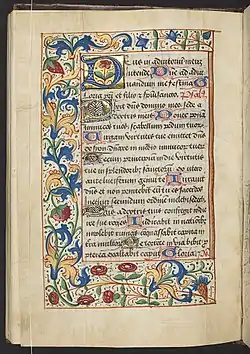 Deus in adiutoriu meum
intende Dne ad adiu
uandum me festina
Gloria pri et filio et spiritusancto Psal
Dixit dns domino meo sede a
dextris meis Donec pona
inimicos tuos scabellum pedum tuor
Uirgam uirtutis tue emittet dns
ex syon dnare in medio inimicor tuor
Tecum principiu in die uirtutis
tue in splendorib sanctor ex ute
ro ante luciferum genui te Iurauit
dns et non penitebit eum tu es sacerdos
in eternu secundum ordinem melchisedech
Dns a dextris tuis confregit in die
ire sue reges Iudicabit in natiōib
implebit ruinas conquassabit capita in
terra multor De torrente in uia bibit p
pterea exaltabit caput Gloria